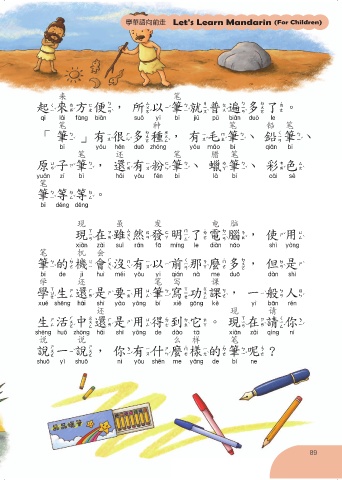 學華語向前走 Let's Learn Mandarin (For Children)
来 笔
起來方便，所以筆就普遍多了。
qǐ lái fāng biàn suǒ yǐ bǐ jiù pǔ biàn duō le
笔 种 笔 铅 笔
「筆」有很多種，有毛筆、鉛筆、
bǐ yǒu hěn duō zhǒng yǒu máo bǐ qiān bǐ
笔 还 笔 腊 笔
原子筆，還有粉筆、蠟筆、彩色
yuán zǐ bǐ hái yǒu fěn bǐ là bǐ cǎi sè
笔
筆等等。
bǐ děng děng
现 虽 发 电 脑
現在雖然發明了電腦，使用
xiàn zài suī rán fā míng le diàn nǎo shǐ yòng
笔 机 会
筆的機會沒有以前那麼多，但是
bǐ de jī huì méi yǒu yǐ qián nà me duō dàn shì
学 还 笔 写 课
學生還是要用筆寫功課，一般人
xué shēng hái shì yào yòng bǐ xiě gōng kè yì bān rén
还 现 请
生活中還是用得到它。現在請你
shēng huó zhōng hái shì yòng de dào tā xiàn zài qǐng nǐ
说 说 么 样 笔
說一說，你有什麼樣的筆呢？
shuō yì shuō nǐ yǒu shén me yàng de bǐ ne
89